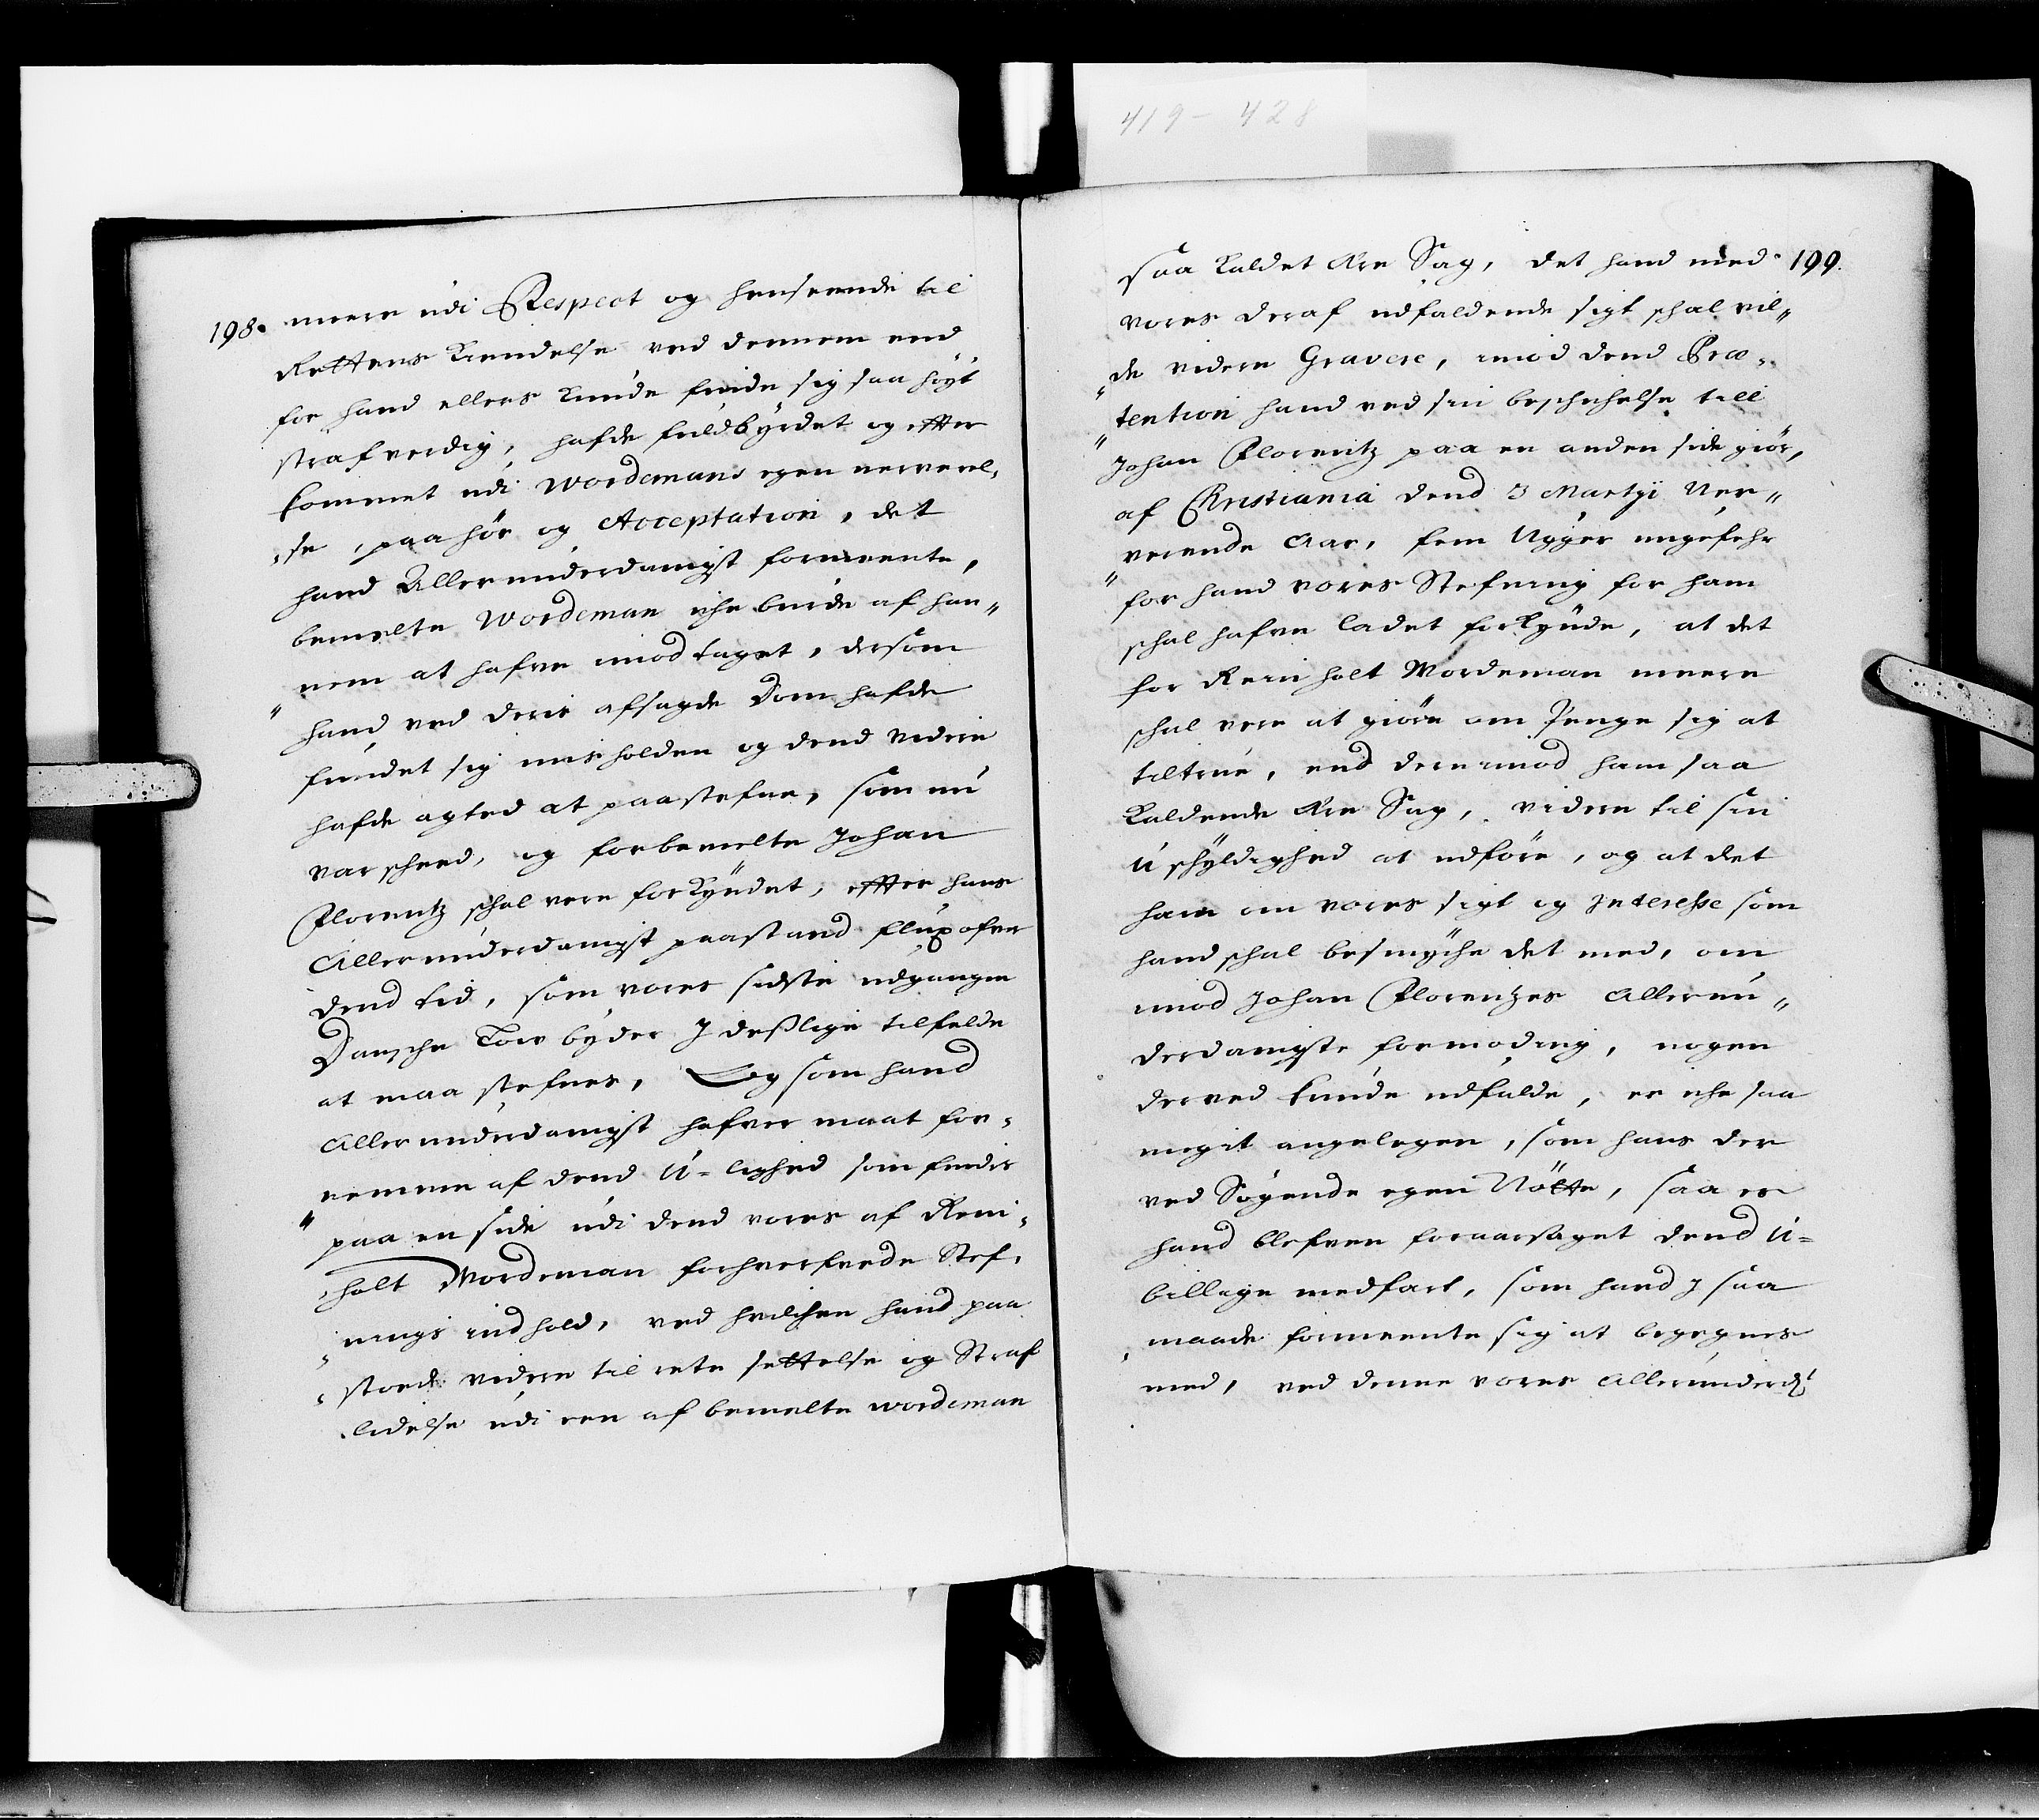 419 - 428
198. meere udi Respect og henseende til
Rettens Kiendelse ved dennem end
for hand ellers Kunde finde sig saa höyt
strafverdig, hafde fuldbyrdet og effter
kommet udi Wordemans egen nerverel„
„se, paahör og Acceptation, det
hand Allerunderdanigst formeente,
bemelte Wordeman iche burde af han„
nem at hafve imodtaget, dersom
„ hand ved deris afsagde Dom hafde
fundet sig misholden og dend videre
hafde agted at paastefne, som nu
var scheed, og forbemelte Johan
Florentz schal vere forkyndet, effter hans
Allerunderdanigst paastand flux ofver
dend tid, som vores sidste udgangne
Dansche Low byder J desslige tilfelde
at maa stefnes, Og som hand
Allerunderdanigst hafver maat for„
nemme af dend U-lighed som findis
„ paa en side udi dend vores af Rein„
„holt Wordeman forhverfvede Stef„
„nings indhold, ved hvilchen hand paa
„stoed videre til rette settelse og Straf
„lidelse udi een af bemelte wordeman
saa kaldet Ære Sag, det hand med 199.
vores deraf udfaldende sigt schal vil„
„de videre Gravere, imod dend Præ„
„tention hand ved sin beschyhelse till
Johan Florentz paa en anden side giör,
af Christiania dend 3 Martÿ Ner„
„verende Aar, fem Uger ungefehr
for hand vores Stefning for ham
schal hafve ladet forkynde, at det
for Reinholt Wordeman meere
schal vere at giöre om Penge sig at
tiltrue, end derimod ham saa
Kaldende Ære Sag, videre til sin
Uschyldighed at udföre, og at det
ham om vores sigt og Interesse som
hand schal besmyche det med, om
imod Johan Florentzes Allerun„
derdanigste formoding, nogen
derved kunde udfalde, er iche saa
megit angelegen, som hans der
ved Sögende egen Nötte, saa er
hand blefven foraarsaget dend U-
billige medfart, som hand J saa
„maade formeente sig at begegnes
med, ved denne vores Allerunderd: